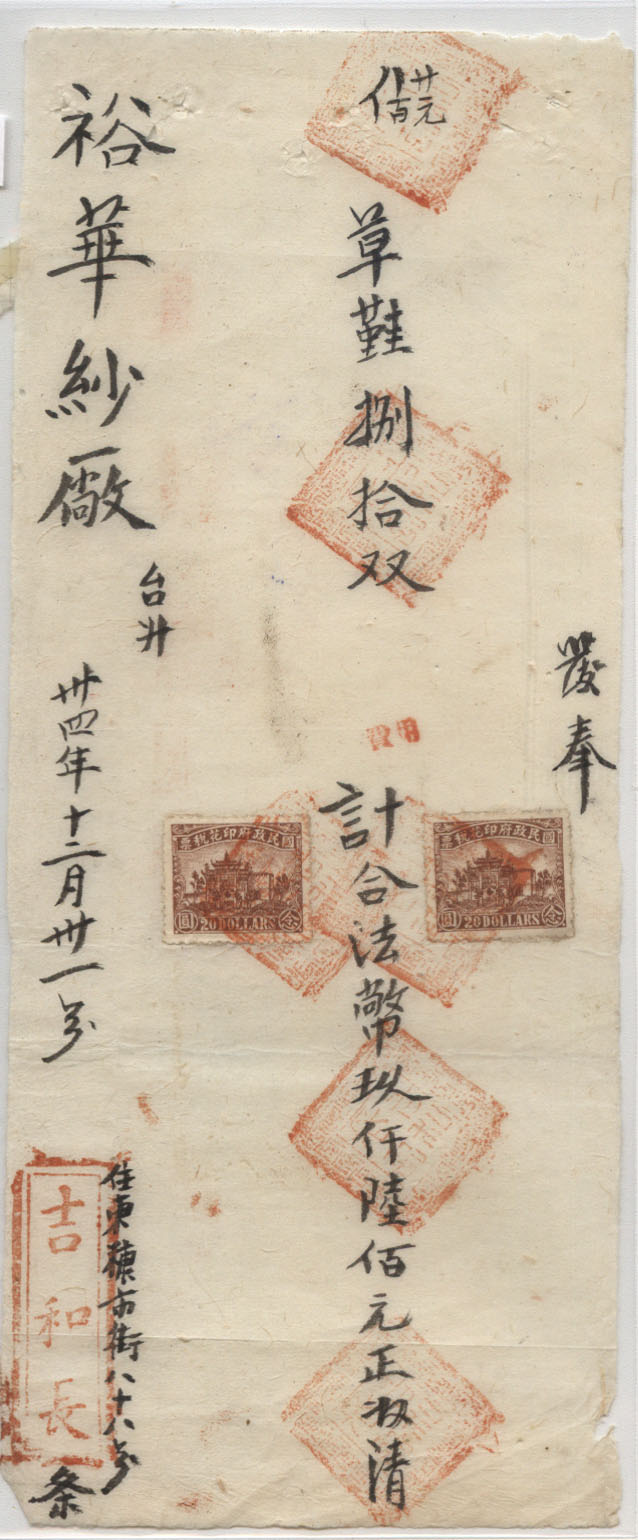 發奉
佰廿元
草鞋捌拾双
用費
計合法幣玖仟陸佰元正收清
國民政府印花稅票
念 20 DOLLARS 圓
國民政府印花稅票
念 20 DOLLARS 圓
裕華紗廠
台升
卅四年十二月卅一号
住東糠市街八十八号
吉和長
条